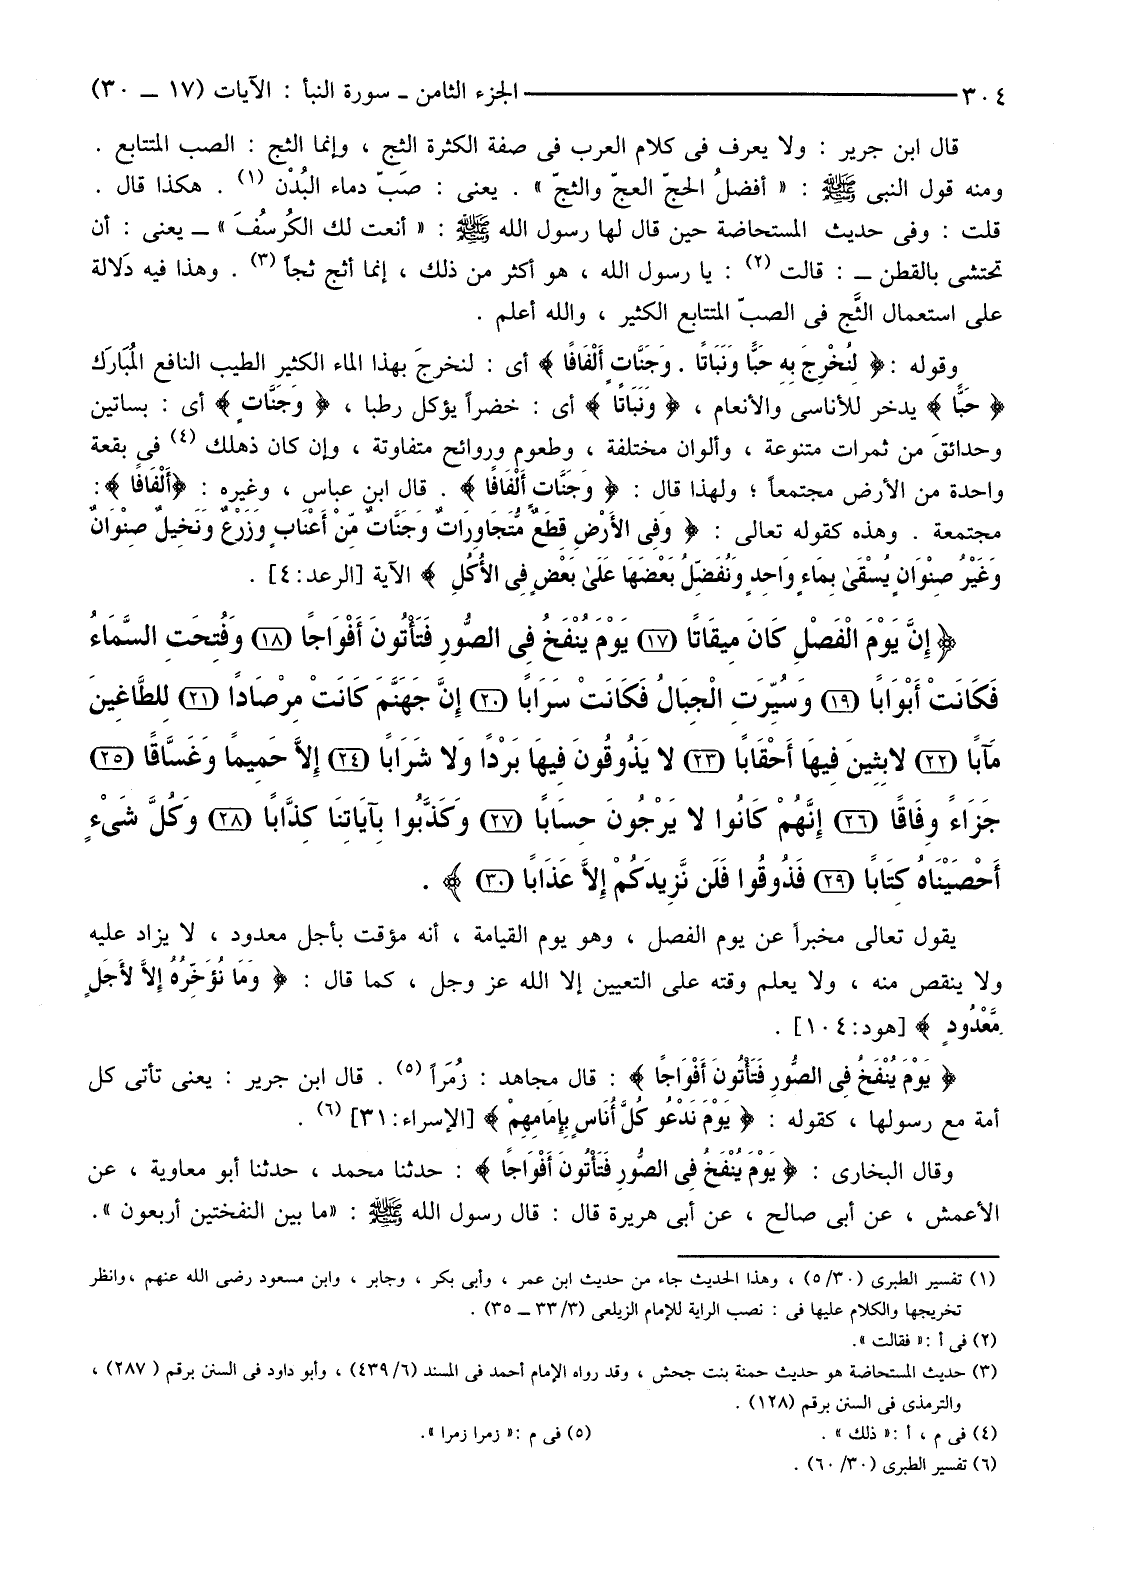 ٣٠٤ ـــــــــ الجزء الثامن ـ سورة النبأ : الآيات (١٧ ــ ٣٠)
قال ابن جرير : ولا يعرف فى كلام العرب فى صفة الكثرة الثج ، وإنما الثج : الصب المتتابع .
ومنه قول النبى ﷺ : « أفضلُ الحجّ العجّ والثجّ » . يعنى : صَبّ دماء البُدْن (١) . هكذا قال .
قلت : وفى حديث المستحاضة حين قال لها رسول الله ﷺ : « أنعت لك الكُرسُفَ » ــ يعنى : أن
تحتشى بالقطن ــ : قالت (٢) : يا رسول الله ، هو أكثر من ذلك ، إنما أثج ثجاً (٣) . وهذا فيه دَلالة
على استعمال الثَّج فى الصبّ المتتابع الكثير ، والله أعلم .
وقوله :﴿ لِنُخْرِجَ بِهِ حَبًّا وَنَبَاتًا . وَجَنَّاتٍ أَلْفَافًا ﴾ أى : لنخرجَ بهذا الماء الكثير الطيب النافع المُبَارَك
﴿ حَبًّا ﴾ يدخر للأناسى والأنعام ، ﴿ وَنَبَاتًا ﴾ أى : خضراً يؤكل رطبا ، ﴿ وَجَنَّاتٍ ﴾ أى : بساتين
وحدائقَ من ثمرات متنوعة ، وألوان مختلفة ، وطعوم وروائح متفاوتة ، وإن كان ذهلك (٤) فى بقعة
واحدة من الأرض مجتمعاً ؛ ولهذا قال : ﴿ وَجَنَّاتٍ أَلْفَافًا ﴾ . قال ابن عباس ، وغيره : ﴿أَلْفَافًا ﴾:
مجتمعة . وهذه كقوله تعالى : ﴿ وَفِى الأَرْضِ قِطَعٌ مُّتَجَاوِرَاتٌ وَجَنَّاتٌ مِّنْ أَعْنَابٍ وَزَرْعٌ وَنَخِيلٌ صِنْوَانٌ
وَغَيْرُ صِنْوَانٍ يُسْقَىٰ بِمَاءٍ وَاحِدٍ وَنُفَضِّلُ بَعْضَهَا عَلَىٰ بَعْضٍ فِى الأُكُلِ ﴾ الآية [الرعد:٤] .
﴿ إِنَّ يَوْمَ الْفَصْلِ كَانَ مِيقَاتًا (١٧) يَوْمَ يُنْفَخُ فِى الصُّورِ فَتَأْتُونَ أَفْوَاجًا (١٨) وَفُتِحَتِ السَّمَاءُ
فَكَانَتْ أَبْوَابًا (١٩) وَسُيِّرَتِ الْجِبَالُ فَكَانَتْ سَرَابًا (٢٠) إِنَّ جَهَنَّمَ كَانَتْ مِرْصَادًا (٢١) لِلطَّاغِينَ
مَآبًا (٢٢) لابِثِينَ فِيهَا أَحْقَابًا (٢٣) لا يَذُوقُونَ فِيهَا بَرْدًا وَلا شَرَابًا (٢٤) إِلاَّ حَمِيمًا وَغَسَّاقًا (٢٥)
جَزَاءً وِفَاقًا (٢٦) إِنَّهُمْ كَانُوا لا يَرْجُونَ حِسَابًا (٢٧) وَكَذَّبُوا بِآيَاتِنَا كِذَّابًا (٢٨) وَكُلَّ شَىْءٍ
أَحْصَيْنَاهُ كِتَابًا (٢٩) فَذُوقُوا فَلَن نَّزِيدَكُمْ إِلاَّ عَذَابًا (٣٠) ﴾ .
يقول تعالى مخبراً عن يوم الفصل ، وهو يوم القيامة ، أنه مؤقت بأجل معدود ، لا يزاد عليه
ولا ينقص منه ، ولا يعلم وقته على التعيين إلا الله عز وجل ، كما قال : ﴿ وَمَا نُؤَخِّرُهُ إِلاَّ لأَجَلٍ
مَّعْدُودٍ ﴾ [هود:١٠٤] .
﴿ يَوْمَ يُنْفَخُ فِى الصُّورِ فَتَأْتُونَ أَفْوَاجًا ﴾ : قال مجاهد : زُمَراً (٥) . قال ابن جرير : يعنى تأتى كل
أمة مع رسولها ، كقوله : ﴿ يَوْمَ نَدْعُو كُلَّ أُنَاسٍ بِإِمَامِهِمْ ﴾ [الإسراء:٣١] (٦) .
وقال البخارى : ﴿ يَوْمَ يُنْفَخُ فِى الصُّورِ فَتَأْتُونَ أَفْوَاجًا ﴾ : حدثنا محمد ، حدثنا أبو معاوية ، عن
الأعمش ، عن أبى صالح ، عن أبى هريرة قال : قال رسول الله ﷺ : «ما بين النفختين أربعون ».
(١) تفسير الطبرى (٣٠/ ٥) ، وهذا الحديث جاء من حديث ابن عمر ، وأبى بكر ، وجابر ، وابن مسعود رضى الله عنهم ،وانظر
تخريجها والكلام عليها فى : نصب الراية للإمام الزيلعى (٣/ ٣٣ ــ ٣٥) .
(٢) فى أ :« فقالت ».
(٣) حديث المستحاضة هو حديث حمنة بنت جحش ، وقد رواه الإمام أحمد فى المسند (٦/ ٤٣٩) ، وأبو داود فى السنن برقم ( ٢٨٧) ،
والترمذى فى السنن برقم (١٢٨) .
(٤) فى م ، أ :« ذلك » . (٥) فى م :« زمرا زمرا ».
(٦) تفسير الطبرى (٣٠/ ٦٠) .